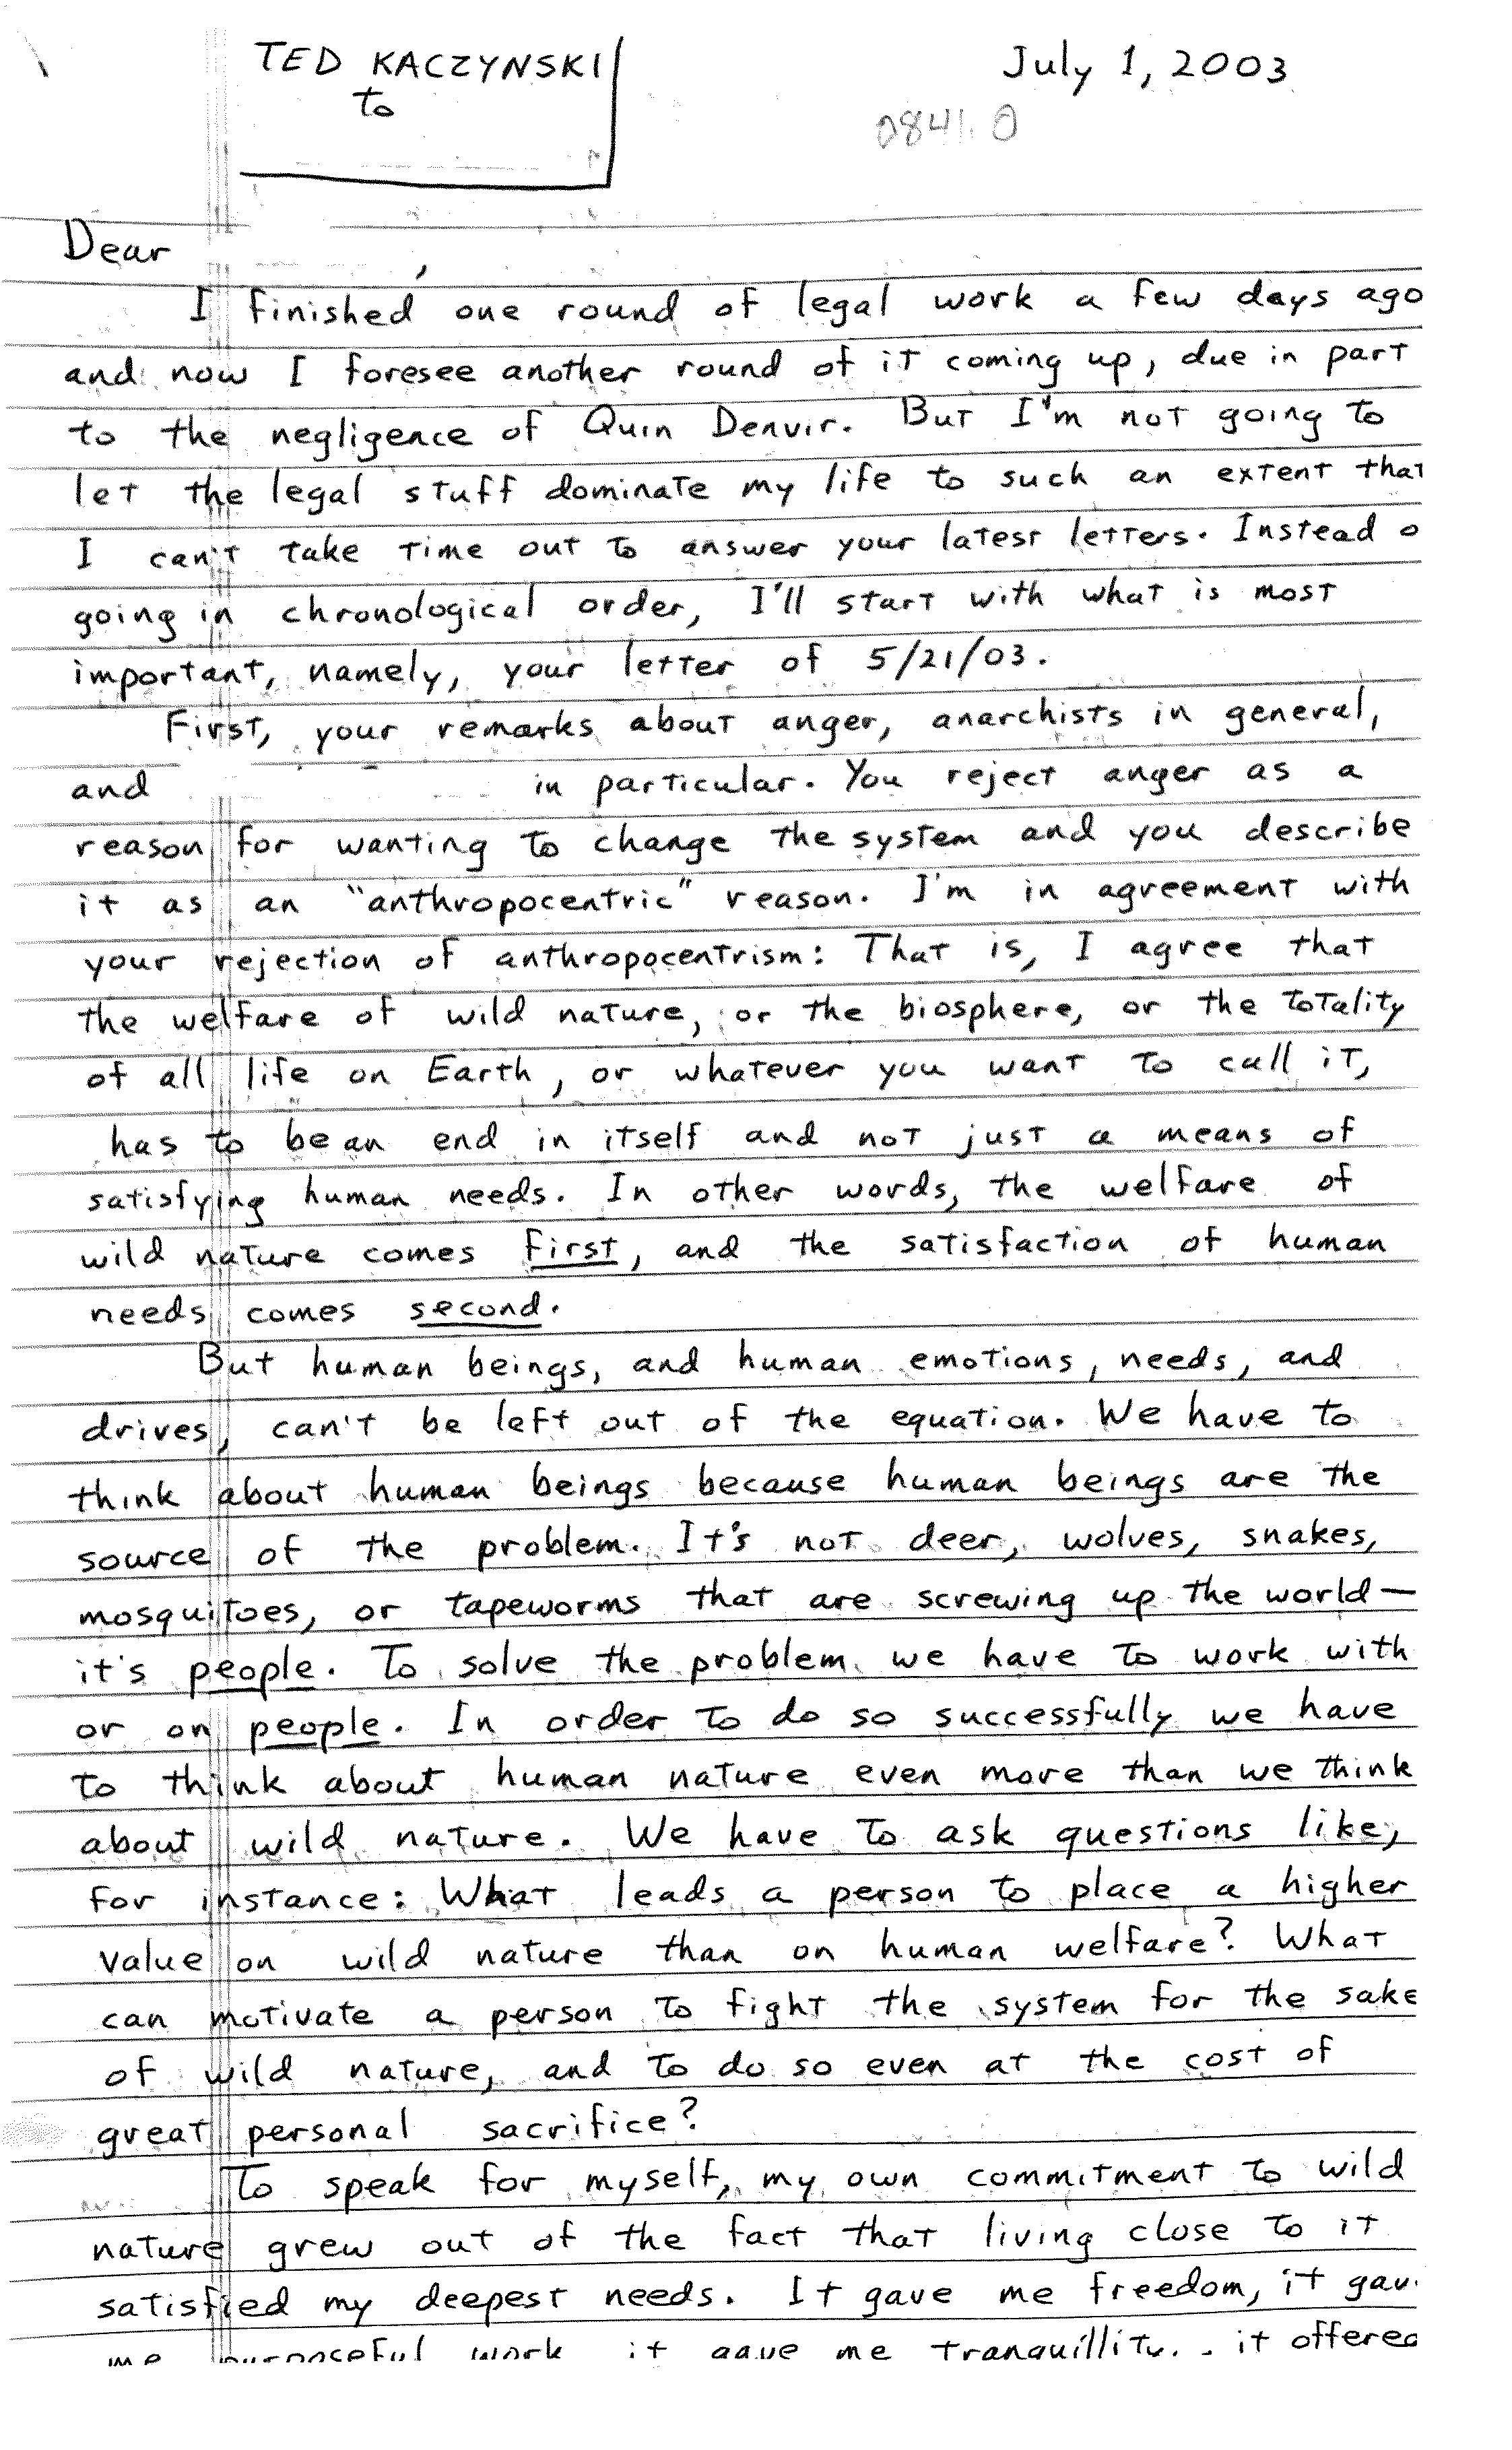 TED KACZYNSKI
to
July 1, 2003
0841.0
Dear ,
I finished one round of legal work a few days ago
and now I foresee another round of it coming up, due in part
to the negligence of Quin Denvir. But I'm not going to
let the legal stuff dominate my life to such an extent that
I can't take time out to answer your latest letters. Instead o
going in chronological order, I'll start with what is most
important, namely, your letter of 5/21/03.
First, your remarks about anger, anarchists in general,
and in particular. You reject anger as a
reason for wanting to change the system and you describe
it as an "anthropocentric" reason. I'm in agreement with
your rejection of anthropocentrism: That is, I agree that
the welfare of wild nature, or the biosphere, or the totality
of all life on Earth, or whatever you want to call it,
has to be an end in itself and not just a means of
satisfying human needs. In other words, the welfare of
wild nature comes first, and the satisfaction of human
needs comes second.
But human beings, and human emotions, needs, and
drives, can't be left out of the equation. We have to
think about human beings because human beings are the
source of the problem. It's not deer, wolves, snakes,
mosquitoes, or tapeworms that are screwing up the world—
it's people. To solve the problem we have to work with
or on people. In order to do so successfully we have
to think about human nature even more than we think
about wild nature. We have to ask questions like,
for instance: What leads a person to place a higher
value on wild nature than on human welfare? What
can motivate a person to fight the system for the sake
of wild nature, and to do so even at the cost of
great personal sacrifice?
To speak for myself, my own commitment to wild
nature grew out of the fact that living close to it
satisfied my deepest needs. It gave me freedom, it gav
me purposeful work it gave me tranquillity, it offered